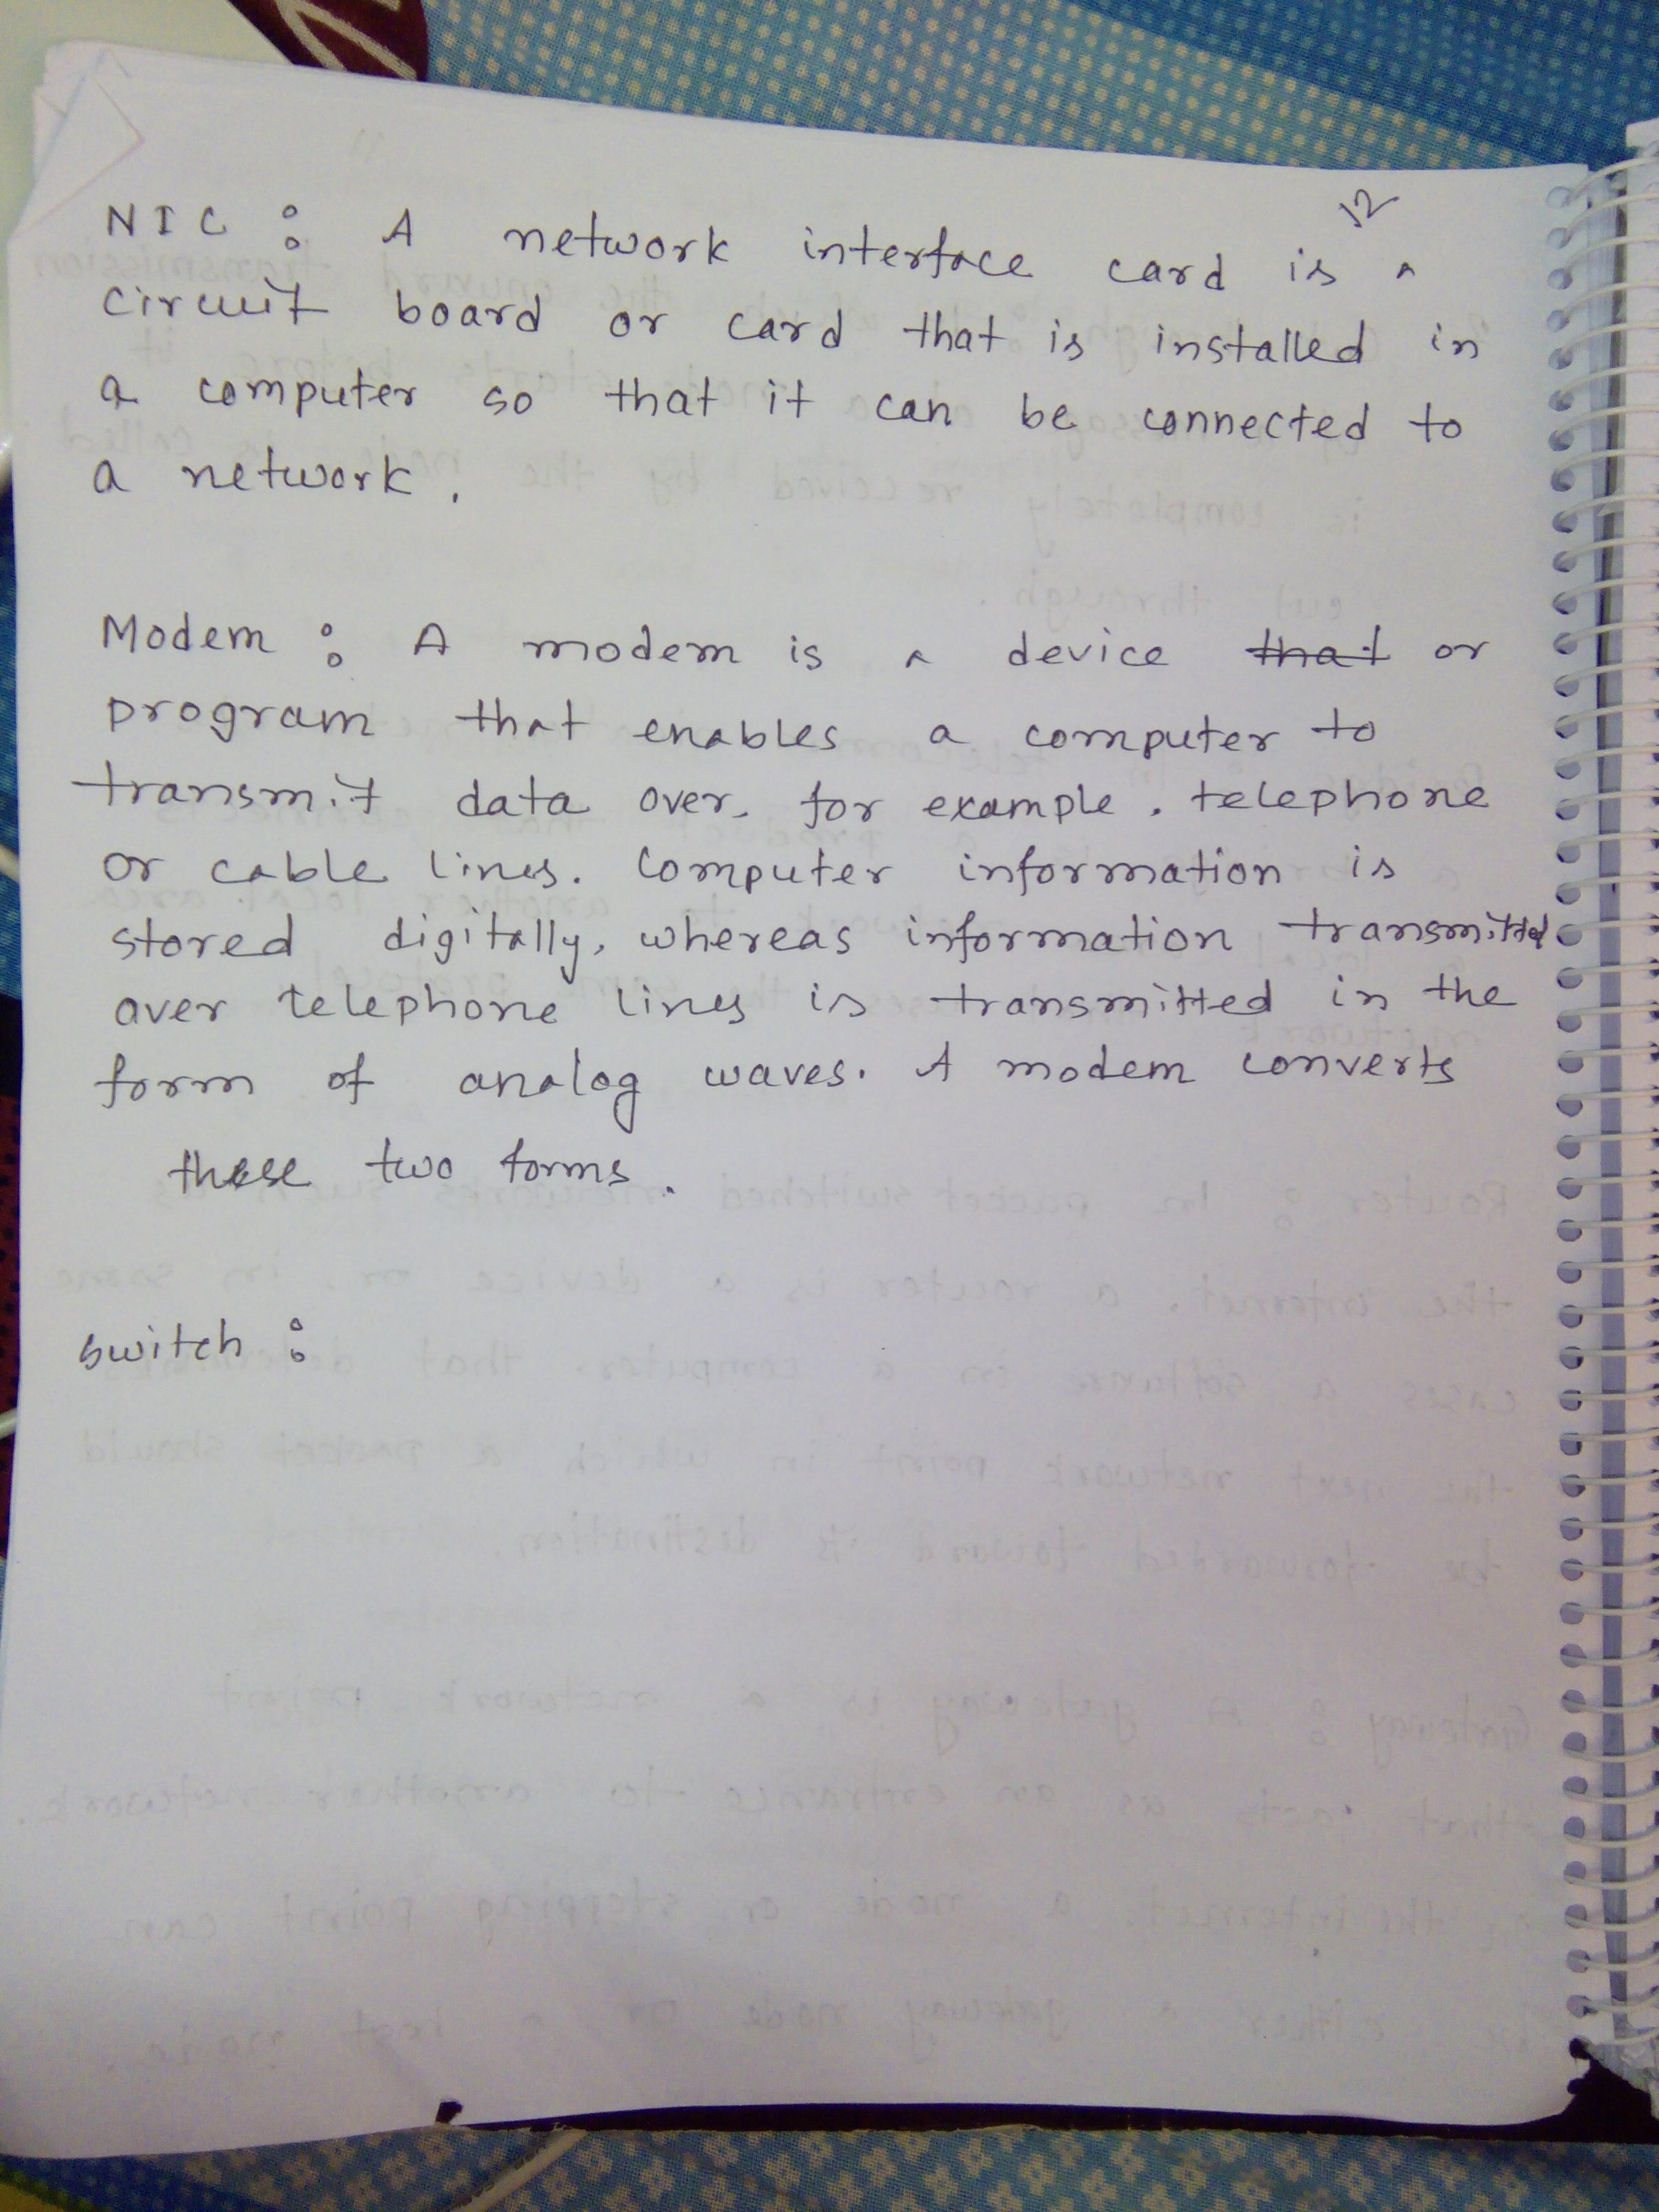 12
NIC : A network interface card is a
circuit board or card that is installed in
a computer so that it can be connected to
a network.
Modem : A modem is a device ~~that~~ or
program that enables a computer to
transmit data over, for example, telephone
or cable lines. Computer information is
stored digitally, whereas information transmitted
over telephone lines is transmitted in the
form of analog waves. A modem converts
these two forms.
switch :